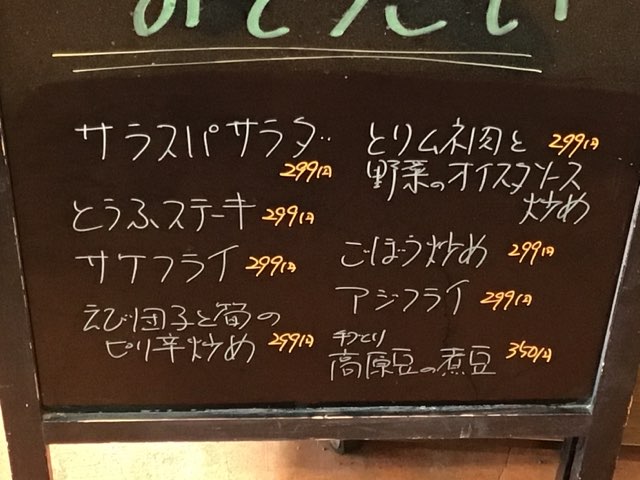 おそうざい
サラスパサラダ
299円
とうふステーキ 299円
サケフライ 299円
えび団子と筍の
ピリ辛炒め 299円
とりムネ肉と 299円
野菜のオイスタソース
炒め
ごぼう炒め 299円
アジフライ 299円
手づくり
高原豆の煮豆 350円